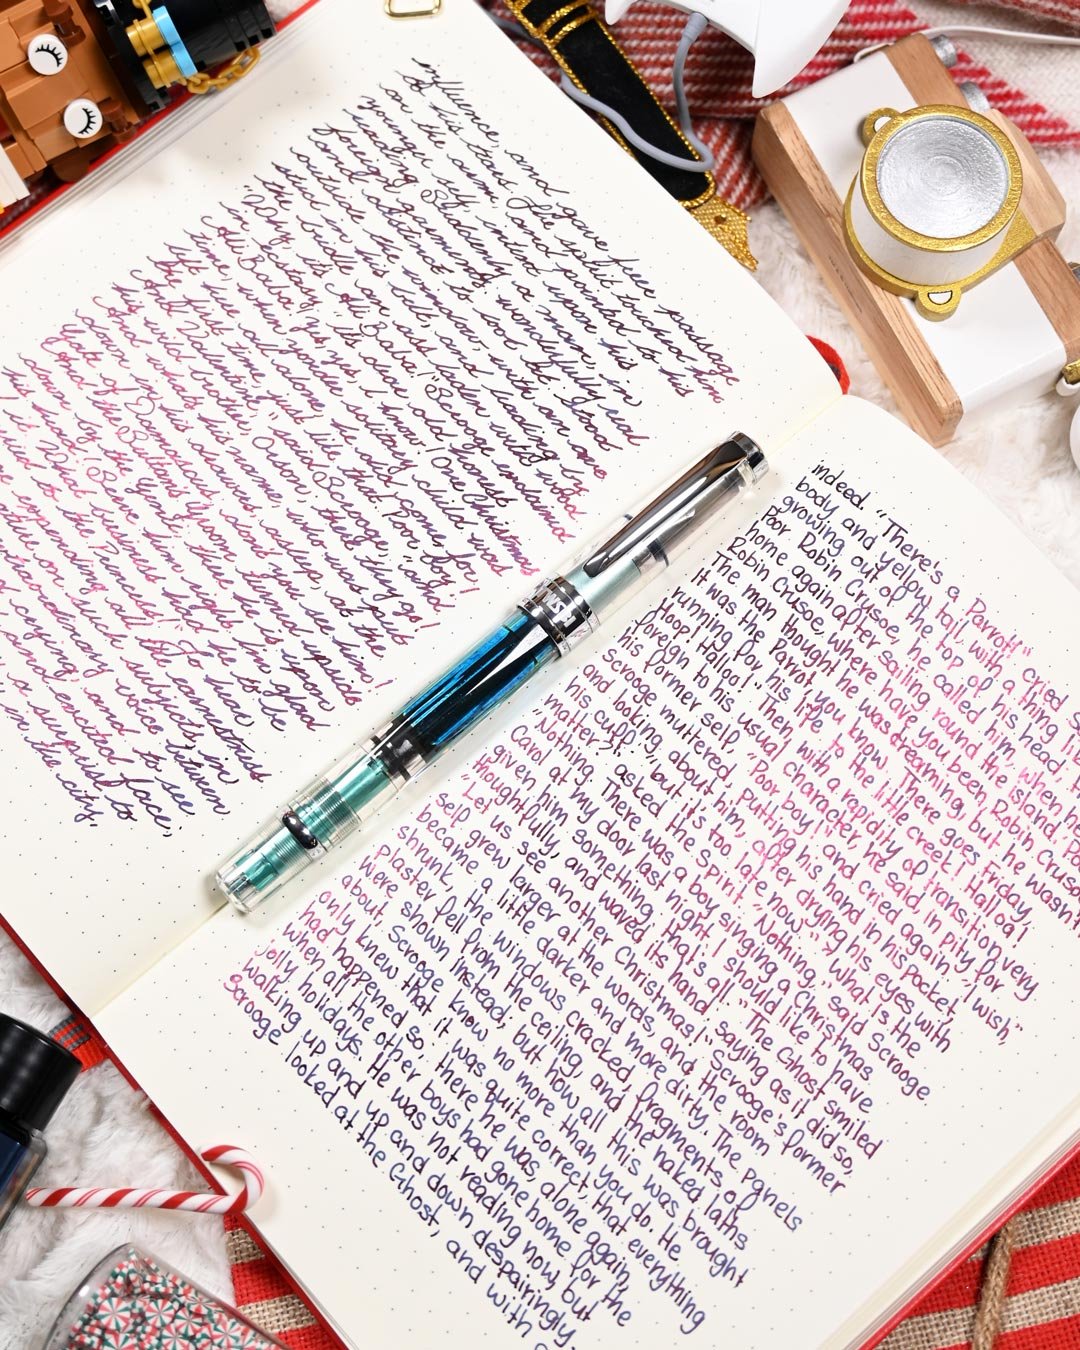 influence, and gave free passage
of his tears. The spirit touched him
on the arm, and pointed to his
younger self, intent upon his
reading. Suddenly a man, in
foreign garments: wonderfully real
and distinct to look at: stood
outside the window, with an axe
stuck in his belt, and leading
the bridle an ass laden with wood.
"Why, it's Ali Baba!" Scrooge exclaimed
in ecstasy. "It's dear old honest
Ali Baba! Yes, yes, I know! One Christmas
time, when yonder solitary child was
left here all alone, he did come, for
the first time, just like that. Poor boy!
And Valentine," said Scrooge, "and
his wild brother, Orson; there they go!
And what's his name, who was put
down in his drawers, asleep, at the
Gate of Damascus; don't you see him!
And the Sultan's Groom turned upside
down by the Genii; there he is upon
his head! Serve him right. I'm glad
What business had he to be
to the Princess!"
expending all
on such subjects, in
extraordinary voice between
crying; and to see
and excited face;
a surprise to
in the city,
indeed. "There's a Parrot!" cried S
body and yellow tail, with a thing like
growing out of the top of his head;
Poor Robin Crusoe, he called him, when he
home again after sailing round the island. Poor
Robin Crusoe, where have you been, Robin Crusoe
The man thought he was dreaming, but he wasn't
It was the Parrot, you know. There goes Friday,
running for his life to the little creek! Halloa!
Hoop! Halloo! Then, with a rapidity of transition very
foreign to his usual character, he said, in pity for
his former self, "Poor boy!" and cried again. "I wish,"
Scrooge muttered, putting his hand in his pocket,
and looking about him, after drying his eyes with
his cuff: "but it's too late now." "What is the
matter?" asked the Spirit. "Nothing," said Scrooge
"Nothing. There was a boy singing a Christmas
Carol at my door last night. I should like to have
given him something: that's all." The Ghost smiled
thoughtfully, and waved its hand: saying as it did so,
"Let us see another Christmas!" Scrooge's former
self grew larger at the words, and the room
became a little darker and more dirty. The panels
shrunk, the windows cracked; fragments of
plaster fell from the ceiling, and the naked laths
were shown instead; but how all this was brought
about, Scrooge know no more than you do. He
only knew that it was quite correct; that everything
had happened so; there he was, alone again,
when all the other boys had gone home for the
jolly holidays. He was not reading now, but
walking up and up and down despairingly.
Scrooge looked at the Ghost, and with